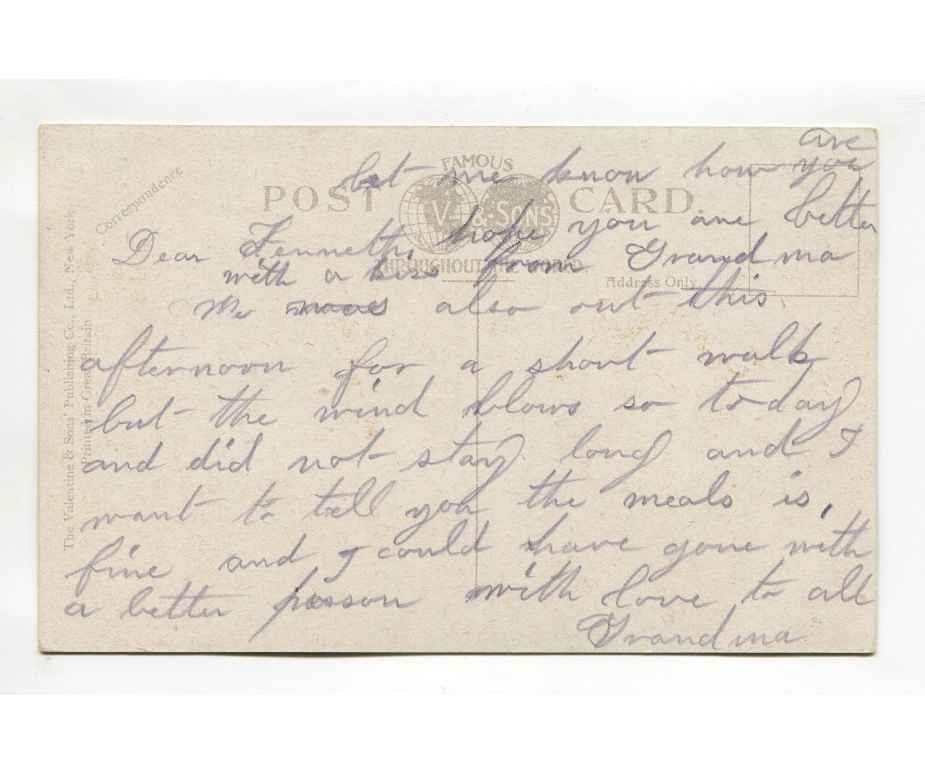 are
let me know how you
FAMOUS
POST CARD.
V & SONS
THROUGHOUT THE WORLD
Dear Kenneth hope you are better
with a kiss from Grandma
Address Only
Correspondence
The Valentine & Sons' Publishing Co., Ltd., New York
Printed in Great Britain
We also out this
afternoon for a short walk
but the wind blows so today
and did not stay long and I
want to tell you the meals is,
fine and I could have gone with
a better with love to all
Grandma